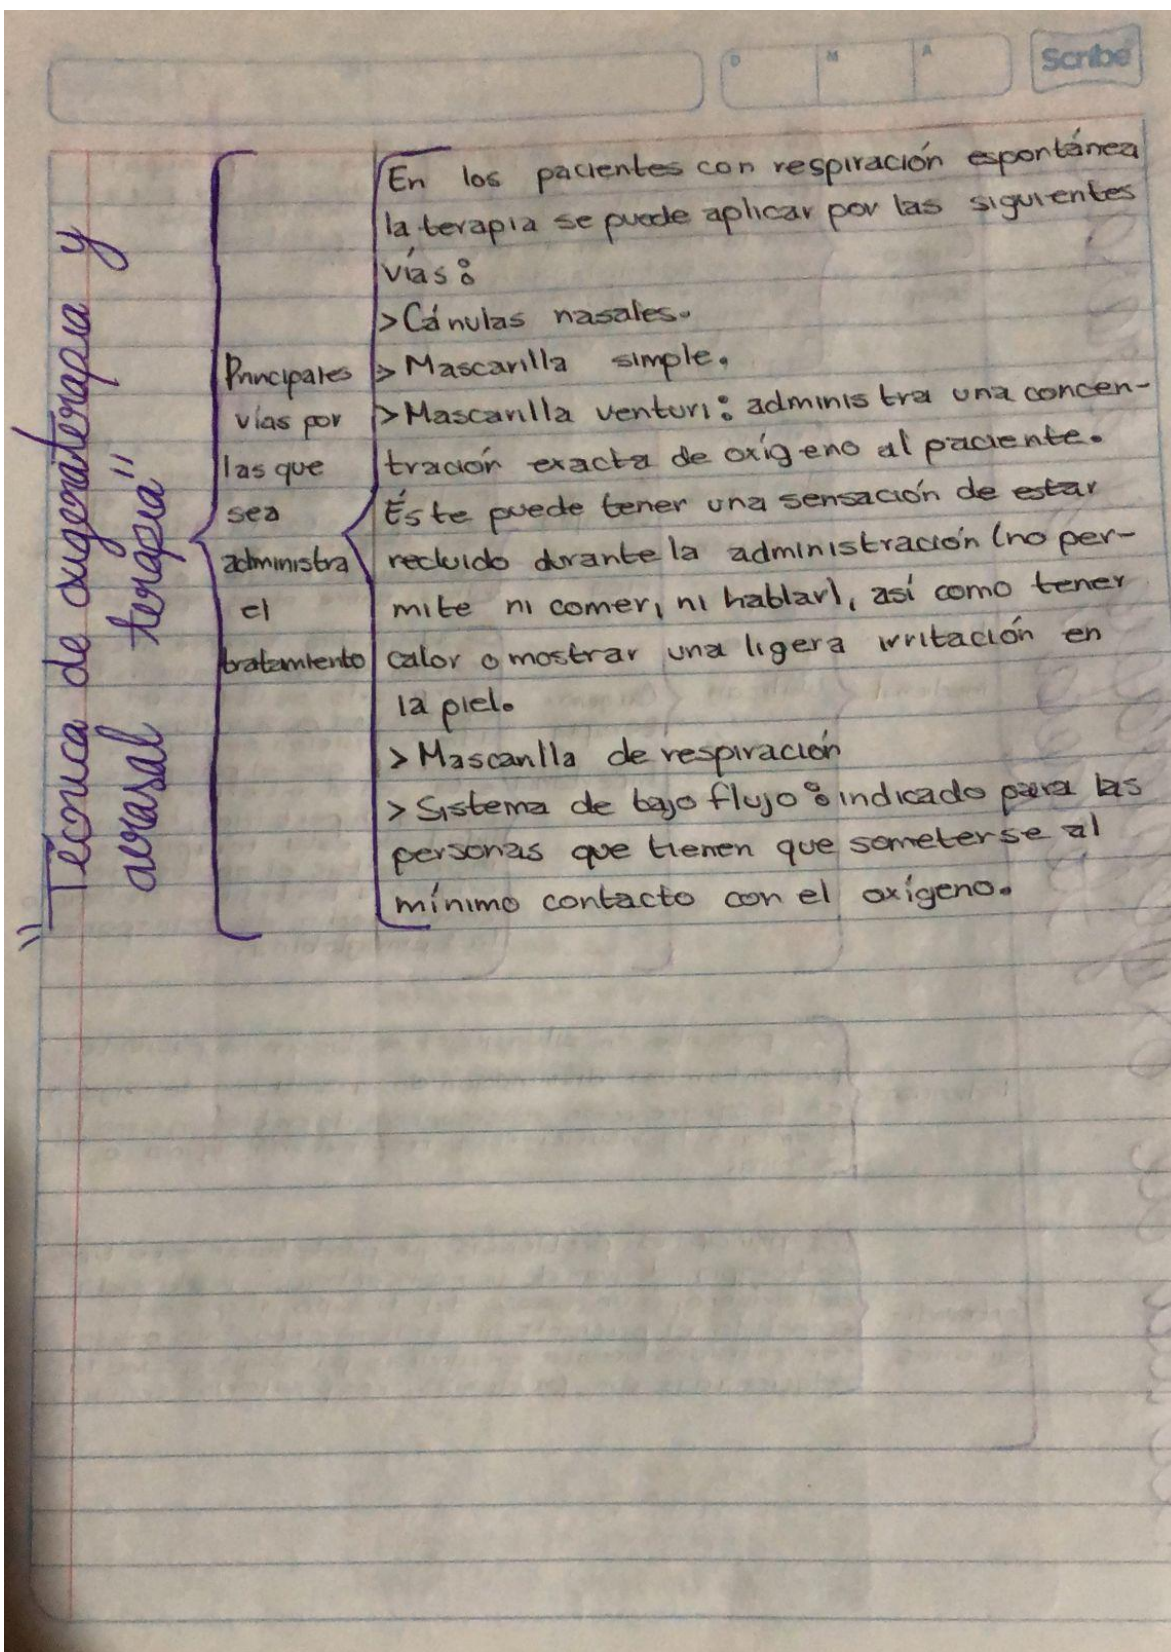 Scribe
D M A
"Técnica de oxigenoterapia y
terapia"
Principales
vías por
las que
sea
administra
el
tratamiento
En los pacientes con respiración espontánea
la terapia se puede aplicar por las siguientes
vías:
>Cánulas nasales.
> Mascarilla simple.
>Mascarilla venturi: administra una concen-
tración exacta de oxígeno al paciente.
Éste puede tener una sensación de estar
recluido durante la administración (no per-
mite ni comer, ni hablar), así como tener
calor o mostrar una ligera irritación en
la piel.
> Mascarilla de respiración
> Sistema de bajo flujo: indicado para las
personas que tienen que someterse al
mínimo contacto con el oxígeno.